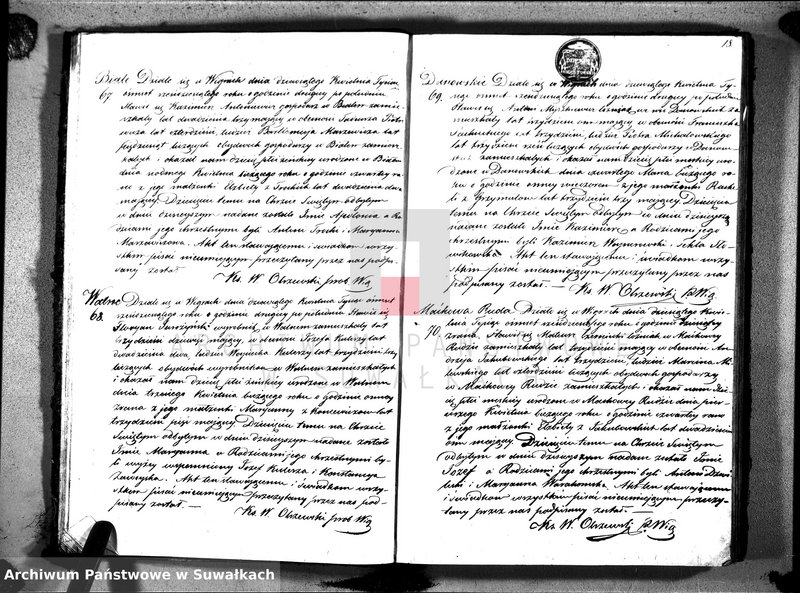 Białe Działo się w Wigrach dnia dziewiątego Kwietnia Tysiąc
67 ośmset sześćdziesiątego roku o godzinie drugiej po południu
Stawił się Kazimierz gospodarz w Białem zamie-
szkały lat dwadzieścia trzy mający w obecności Tadeusza
lat czterdzieści, tudzież Bartłomieja Marszewicza lat
pięćdziesiąt liczących obydwóch gospodarzy w Białem zamiesz-
kałych i okazał nam dziecię płci żeńskiej urodzone w Białem
dnia Kwietnia bieżącego roku o godzinie czwartej ra-
no z jego małżonki Elżbiety z Trockich lat dwadzieścia dwa
mającej. Dziecięciu temu na Chrzcie Świętym odbytym
w dniu dzisiejszym nadane zostało Imię Apolonia a Ro-
dzicami jego chrzestnymi byli Antoni Trocki i Maryanna
Marszewiczowa. Akt ten stawającemu i świadkom wszy-
stkim pisać nieumiejącym przeczytany przez nas podpi-
sany został. —
Ks. W. Olszewski prob. Wig
Walne Działo się w Wigrach dnia dziewiątego Kwietnia Tysiąc ośmset
68. sześćdziesiątego roku o godzinie drugiej po południu Stawił się
Floryan wyrobnik w Walnem zamieszkały lat
trzydzieści dziewięć mający, w obecności Józefa Kulerzy lat
dwadzieścia dwa, tudzież Wojciecha Kulerzy lat trzydzieści trzy
liczących obydwóch wyrobników w Walnem zamieszkałych
i okazał nam dziecię płci żeńskiej urodzone w Walnem
dnia trzeciego Kwietnia bieżącego roku o godzinie ósmej
zrana z jego małżonki Maryanny z lat
trzydzieści pięć mającej. Dziecięciu temu na Chrzcie
Świętym odbytym w dniu dzisiejszym nadane zostało
Imię Maryanna a Rodzicami jego chrzestnymi by-
li wyżej wspomniony Józef Kulerza i Konstancya
Zawrycka. Akt ten stawającemu i świadkom wszy-
stkim pisać nieumiejącym przeczytany przez nas pod-
pisany został. —
Ks. W. Olszewski prob. Wig
18
Danowskie Działo się w Wigrach dnia dziewiątego Kwietnia Ty-
69. siąc ośmset sześćdziesiątego roku o godzinie drugiej po południu
Stawił się Antoni we wsi Danowskich za-
mieszkały lat trzydzieści ośm mający w obecności Franciszka
lat trzydzieści, tudzież Piotra Michałowskiego
lat trzydzieści sześć liczących obydwóch gospodarzy w Danow-
skich zamieszkałych i okazał nam dziecię płci męskiej uro-
dzone w Danowskich dnia czwartego Marca bieżącego ro-
ku o godzinie ósmej wieczorem z jego małżonki
z Grzymałów lat trzydzieści trzy mającej. Dziecięciu
temu na Chrzcie Świętym odbytym w dniu dzisiejszym
nadane zostało Imię Kazimierz a Rodzicami jego
chrzestnymi byli Kazimierz Wojnowski i Tekla
Akt ten stawającemu i świadkom wszy-
stkim pisać nieumiejącym przeczytany przez nas
podpisany został. —
Ks. W. Olszewski PWig
Maćkowa Ruda Działo się w Wigrach dnia dziewiątego Kwie-
70. tnia Tysiąc ośmset sześćdziesiątego roku o godzinie dziewiątej
zrana. Stawił się w Maćkowej
Rudzie zamieszkały lat trzydzieści mający w obecności An-
drzeja lat trzydzieści, tudzież Marcina
lat czterdzieści liczących obydwóch gospodarzy
w Maćkowej Rudzie zamieszkałych i okazał nam dzie-
cię płci męskiej urodzone w Maćkowej Rudzie dnia pier-
wszego Kwietnia bieżącego roku o godzinie czwartej rano
z jego małżonki Elżbiety z lat dwadzieścia
ośm mającej. Dziecięciu temu na Chrzcie Świętym
odbytym w dniu dzisiejszym nadane zostało Imię
Józef a Rodzicami jego chrzestnymi byli Antoni
i Maryanna Akt ten stawającemu
i świadkom wszystkim pisać nieumiejącym przeczy-
tany przez nas podpisany został. —
Ks. W. Olszewski PWig
Archiwum Państwowe w Suwałkach